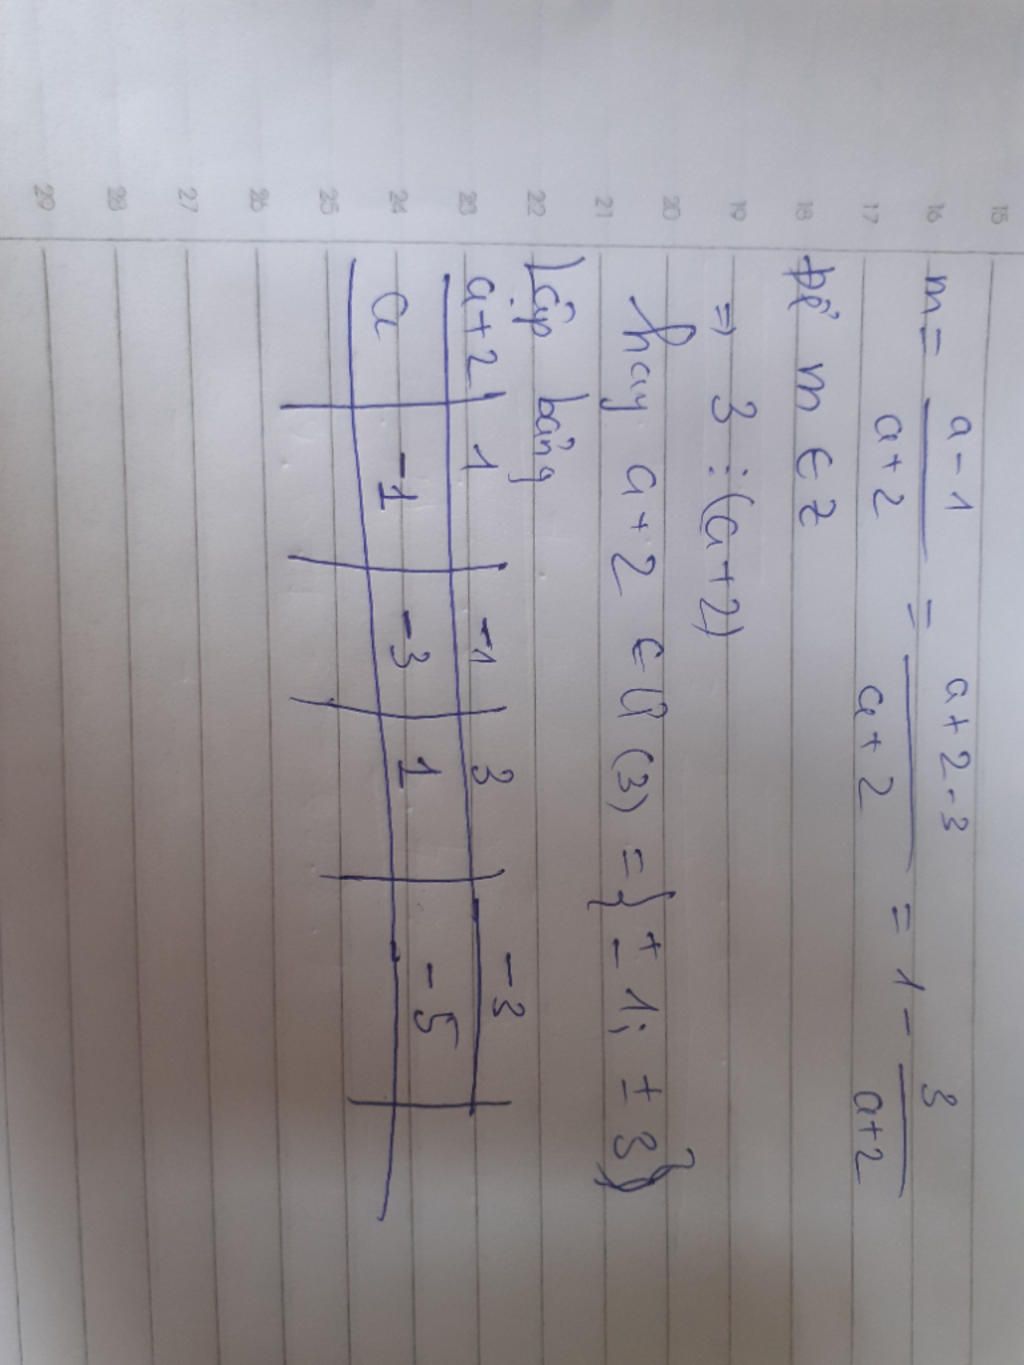 15
16 m = a - 1 / a + 2 = a + 2 - 3 / a + 2 = 1 - 3 / a + 2
17
18 Để m ∈ Z
19 => 3 ⋮ (a + 2)
20
21 hay a + 2 ∈ Ư (3) = { ± 1; ± 3 }
22 Lập bảng
23 a + 2 | 1 | -1 | 3 | -3
24 a | -1 | -3 | 1 | -5
25
26
27
28
29